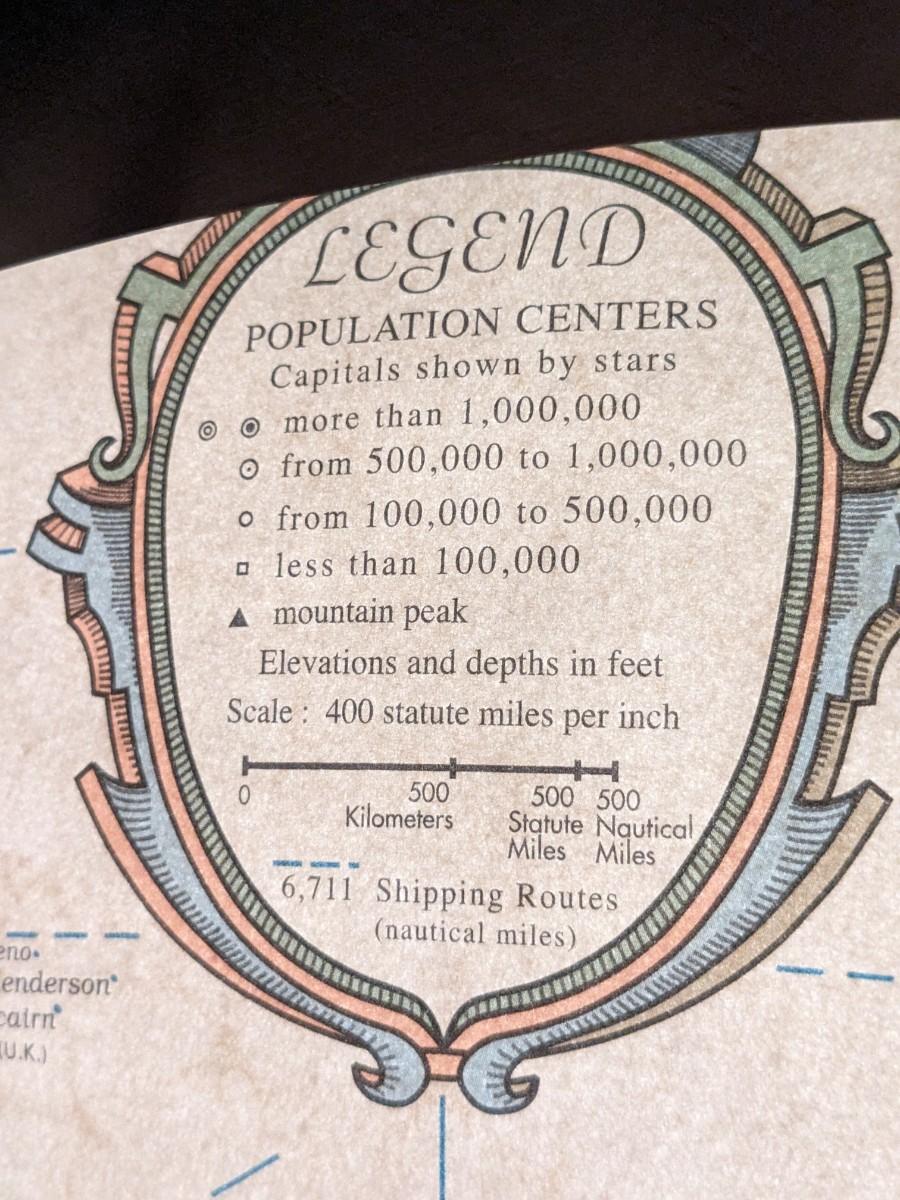 LEGEND
POPULATION CENTERS
Capitals shown by stars
more than 1,000,000
from 500,000 to 1,000,000
from 100,000 to 500,000
less than 100,000
mountain peak
Elevations and depths in feet
Scale : 400 statute miles per inch
0 500 500 500
Kilometers Statute Nautical
Miles Miles
6,711 Shipping Routes
(nautical miles)
eno
enderson
cairn
(U.K.)